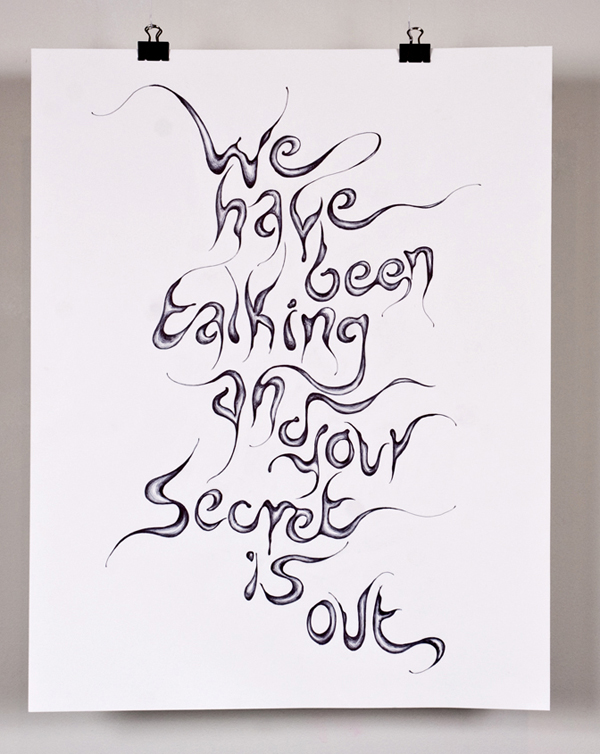 We
have
been
talking
and
your
Secret
is
out